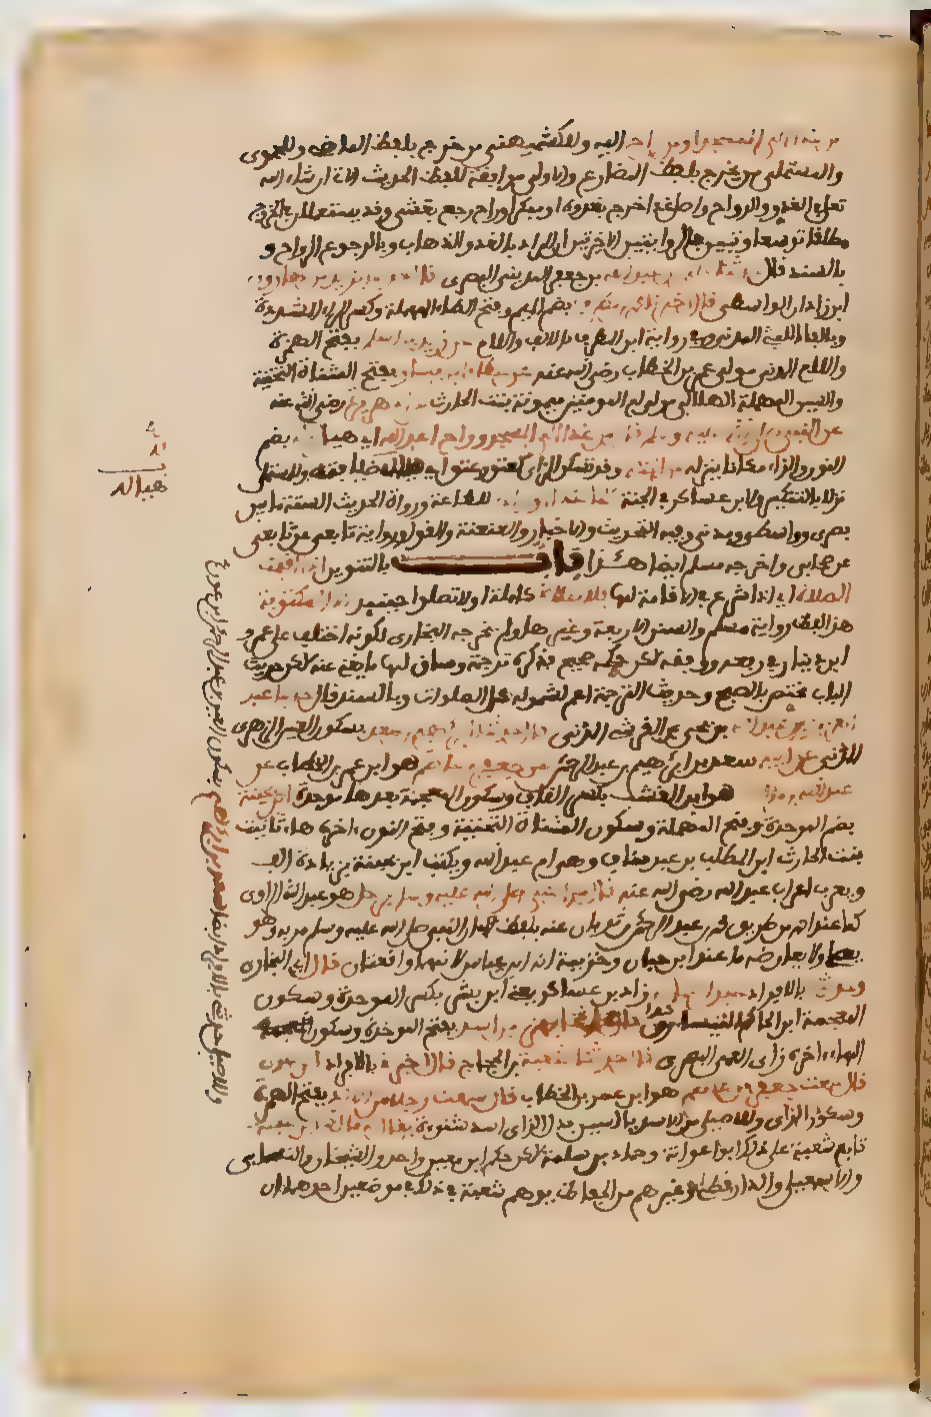 من غدا الى المسجد او من راح اليه وللكشميهني من خرج بلفظ الماضي وللحموي
والمستملي من يخرج بلفظ المضارع والاولى موافقة للفظ الحديث الات ان شاء الله
تعلى الغدو والرواح واصل غدا خرج بغدوة اي مبكرا وراح رجع بعشي وقد يستعملان في الخروج
مطلقا توسعا وتبين بالروايتين الاخرتين ان المراد بالغدو الذهاب وبالرجوع الرواح و
بالسند قال حدثنا علي بن عبد الله بن جعفر المديني البصري قال حدثنا يزيد بن هارون
ابن زادان الواسطي قال اخبرنا محمد بن مطرف بضم الميم وفتح الطاء المهملة وكسر الراء المشددة
وبالفاء الليثي المدني وفي رواية ابن المطرف بالالف واللام عن زيد بن اسلم بفتح الهمزة
واللام المدني مولى عمر بن الخطاب رضي الله عنه عن عطاء بن يسار بفتح المثناة التحتية
والسين المهملة الهلالي مولى ام المومنين ميمونة بنت الحارث عن ابي هريرة رضي الله عنه
عن النبي صلى الله عليه وسلم قال من غدا الى المسجد وراح اعد الله اي هيا له بضم
النون والزاء مكانا ينزله من الجنة وقد تسكن الزاي كعنق وعنق
نزلا بالتنكير ولابن عساكر في الجنة كلما غدا او راح للطاعة ورواة الحديث الستة ما بين
بصري وواسطي ومدني وفيه التحديث والاخبار والعنعنة والقول ورواية تابعي عن تابعي
عن صحابي واخرجه مسلم ايضا هذا باب بالتنوين اذا اقيمت
الصلاة اي اذا شرع في الاقامة لها فلا صلاة كاملة او لا تصلوا حينئذ الا المكتوبة
هذا لفظ رواية مسلم والسنن الاربعة وغيرها ولم يخرجه البخاري لكونه اختلف على عمرو
ابن دينار في رفعه ووقفه لكن حكمه صحيح فذكره ترجمة وساق لها ما يغني عنه لكن حديث
الباب مختص بالصبح وحديث الترجمة اعم لشموله كل الصلوات وبالسند قال حدثنا عبد
العزيز بن عبد الله بن يحيى القرشي المدني قال حدثنا ابراهيم بن سعد بسكون العين الزهري
المدني عن ابيه سعد بن ابراهيم بن عبد الرحمن عن حفص بن عاصم هو ابن عمر بن الخطاب عن
عبد الله بن مالك هو ابن القشب بكسر القاف وسكون المعجمة بعدها موحدة ابن بحينة
بضم الموحدة وفتح المهملة وسكون المثناة التحتية وفتح النون اخره هاء تانيث
بنت الحارث ابن المطلب بن عبد مناف وهي ام عبد الله ويكتب ابن بحينة بزيادة الف
ويعرب اعراب عبد الله رضي الله عنه قال مر النبي صلى الله عليه وسلم برجل هو عبد الله الراوي
كما عند احمد من طريق محمد بن عبد الرحمن بن ثوبان عنه بلفظ ان النبي صلى الله عليه وسلم مر به وهو
يصلي ولا يعارضه ما عند ابن حبان وخزيمة انه ابن عباس لانهما واقعتان قال اي البخاري
وحدثني بالافراد عبد الرحمن زاد ابن عساكر يعني ابن بشر بكسر الموحدة وسكون
المعجمة ابن الحكم النيسابوري قال حدثنا بهز بن اسد بفتح الموحدة وسكون
الهاء اخره زاي العمي البصري قال حدثنا شعبة بن الحجاج قال اخبرني بالافراد سعد
قال سمعت حفص بن عاصم هو ابن عمر بن الخطاب قال سمعت رجلا من الازد بفتح الهمزة
وسكون الزاي وللاصيلي من الاسد بالسين بدل الزاي اسد شنوءة يقال له مالك ابن بحينة
تابع شعبة على ذلك ابو عوانة وحماد بن سلمة لكن حكم ابن معين واحمد والشيخان والنسائي
والاسمعيلي والدارقطني وغيرهم من الحفاظ بوهم شعبة في ذلك في موضعين احدهما ان
هيا له
وللاصيلي حدثني بالافراد ايضا سعد بن ابراهيم بسكون العين بن عبد الرحمن ابن عوف